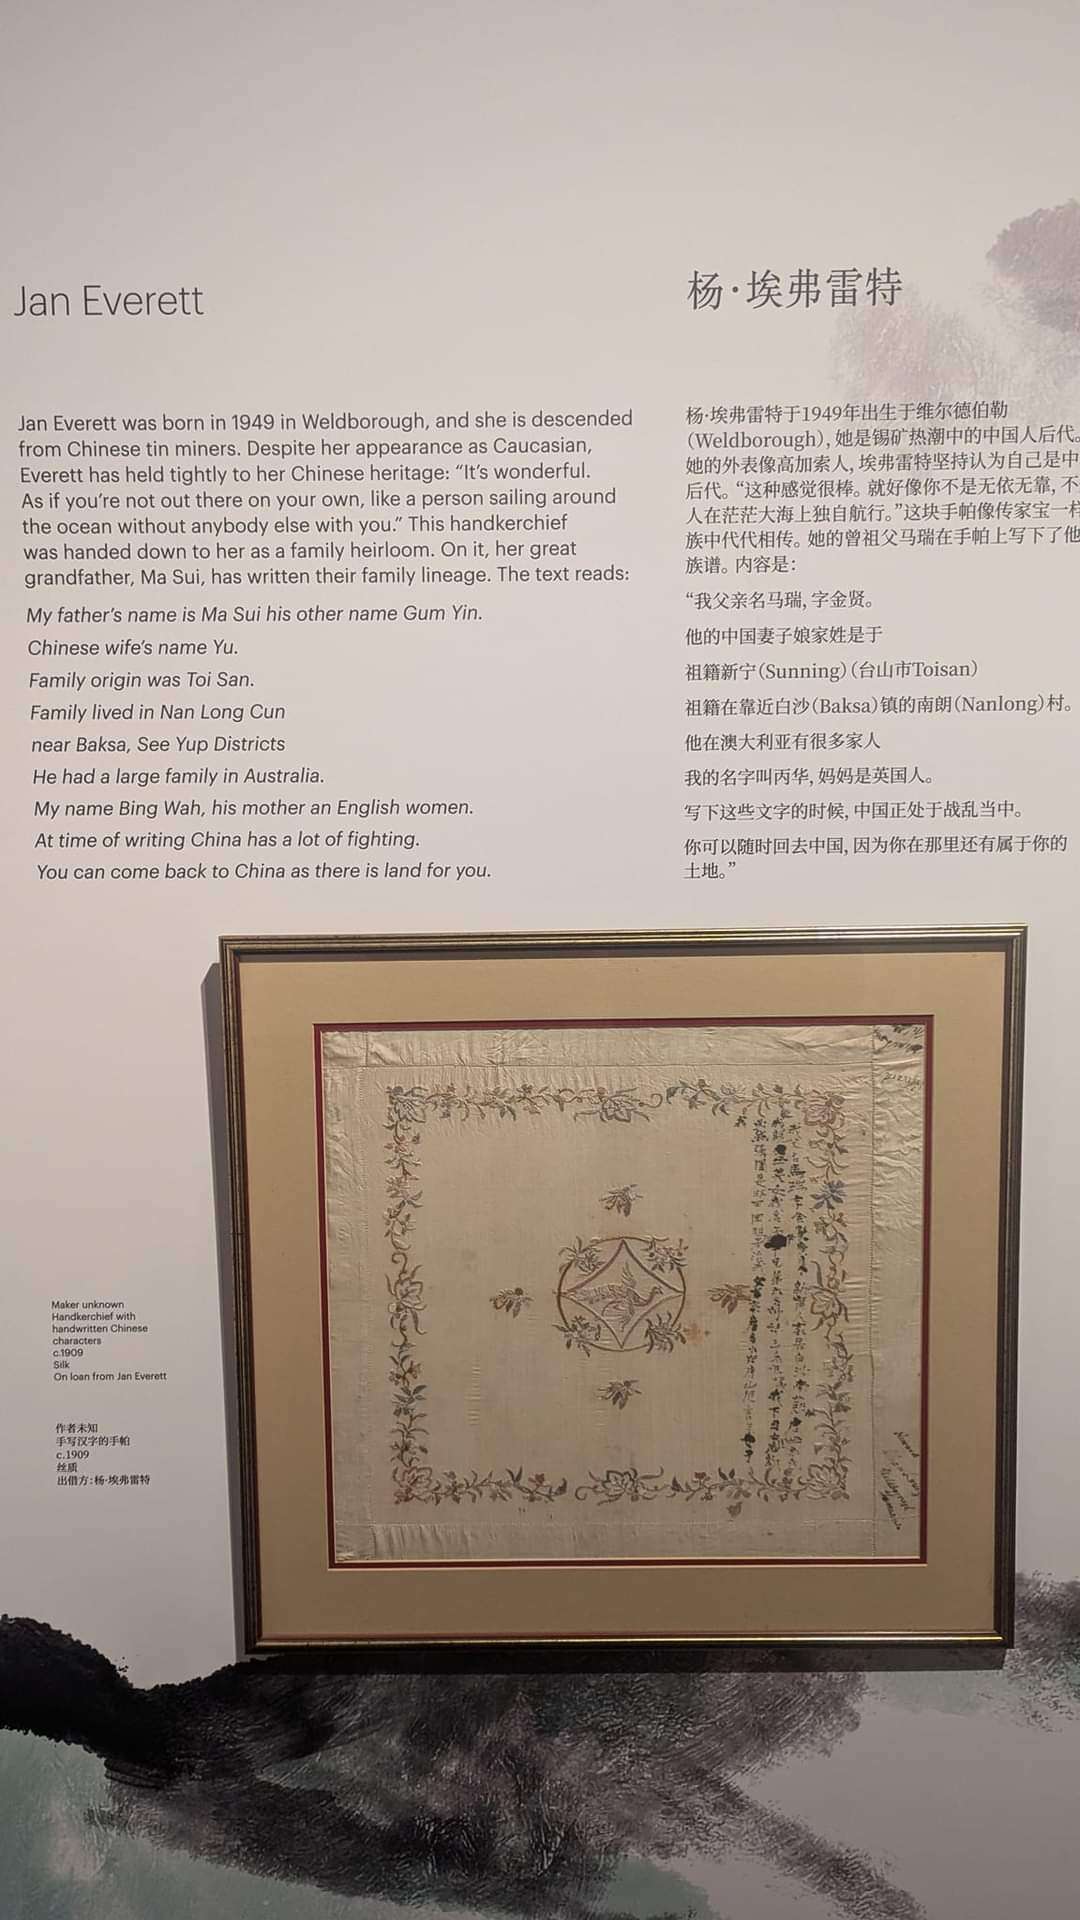 Jan Everett
Jan Everett was born in 1949 in Weldborough, and she is descended
from Chinese tin miners. Despite her appearance as Caucasian,
Everett has held tightly to her Chinese heritage: “It’s wonderful.
As if you’re not out there on your own, like a person sailing around
the ocean without anybody else with you.” This handkerchief
was handed down to her as a family heirloom. On it, her great
grandfather, Ma Sui, has written their family lineage. The text reads:
My father’s name is Ma Sui his other name Gum Yin.
Chinese wife’s name Yu.
Family origin was Toi San.
Family lived in Nan Long Cun
near Baksa, See Yup Districts
He had a large family in Australia.
My name Bing Wah, his mother an English women.
At time of writing China has a lot of fighting.
You can come back to China as there is land for you.
杨·埃弗雷特
杨·埃弗雷特于1949年出生于维尔德伯勒
（Weldborough），她是锡矿热潮中的中国人后代。
她的外表像高加索人，埃弗雷特坚持认为自己是中
后代。“这种感觉很棒。就好像你不是无依无靠，不
人在茫茫大海上独自航行。”这块手帕像传家宝一样
族中代代相传。她的曾祖父马瑞在手帕上写下了他
族谱。内容是：
“我父亲名马瑞，字金贤。
他的中国妻子娘家姓是于
祖籍新宁（Sunning）（台山市Toisan）
祖籍在靠近白沙（Baksa）镇的南朗（Nanlong）村。
他在澳大利亚有很多家人
我的名字叫丙华，妈妈是英国人。
写下这些文字的时候，中国正处于战乱当中。
你可以随时回去中国，因为你在那里还有属于你的
土地。”
Maker unknown
Handkerchief with
handwritten Chinese
characters
c.1909
Silk
On loan from Jan Everett
作者未知
手写汉字的手帕
c.1909
丝质
出借方：杨·埃弗雷特